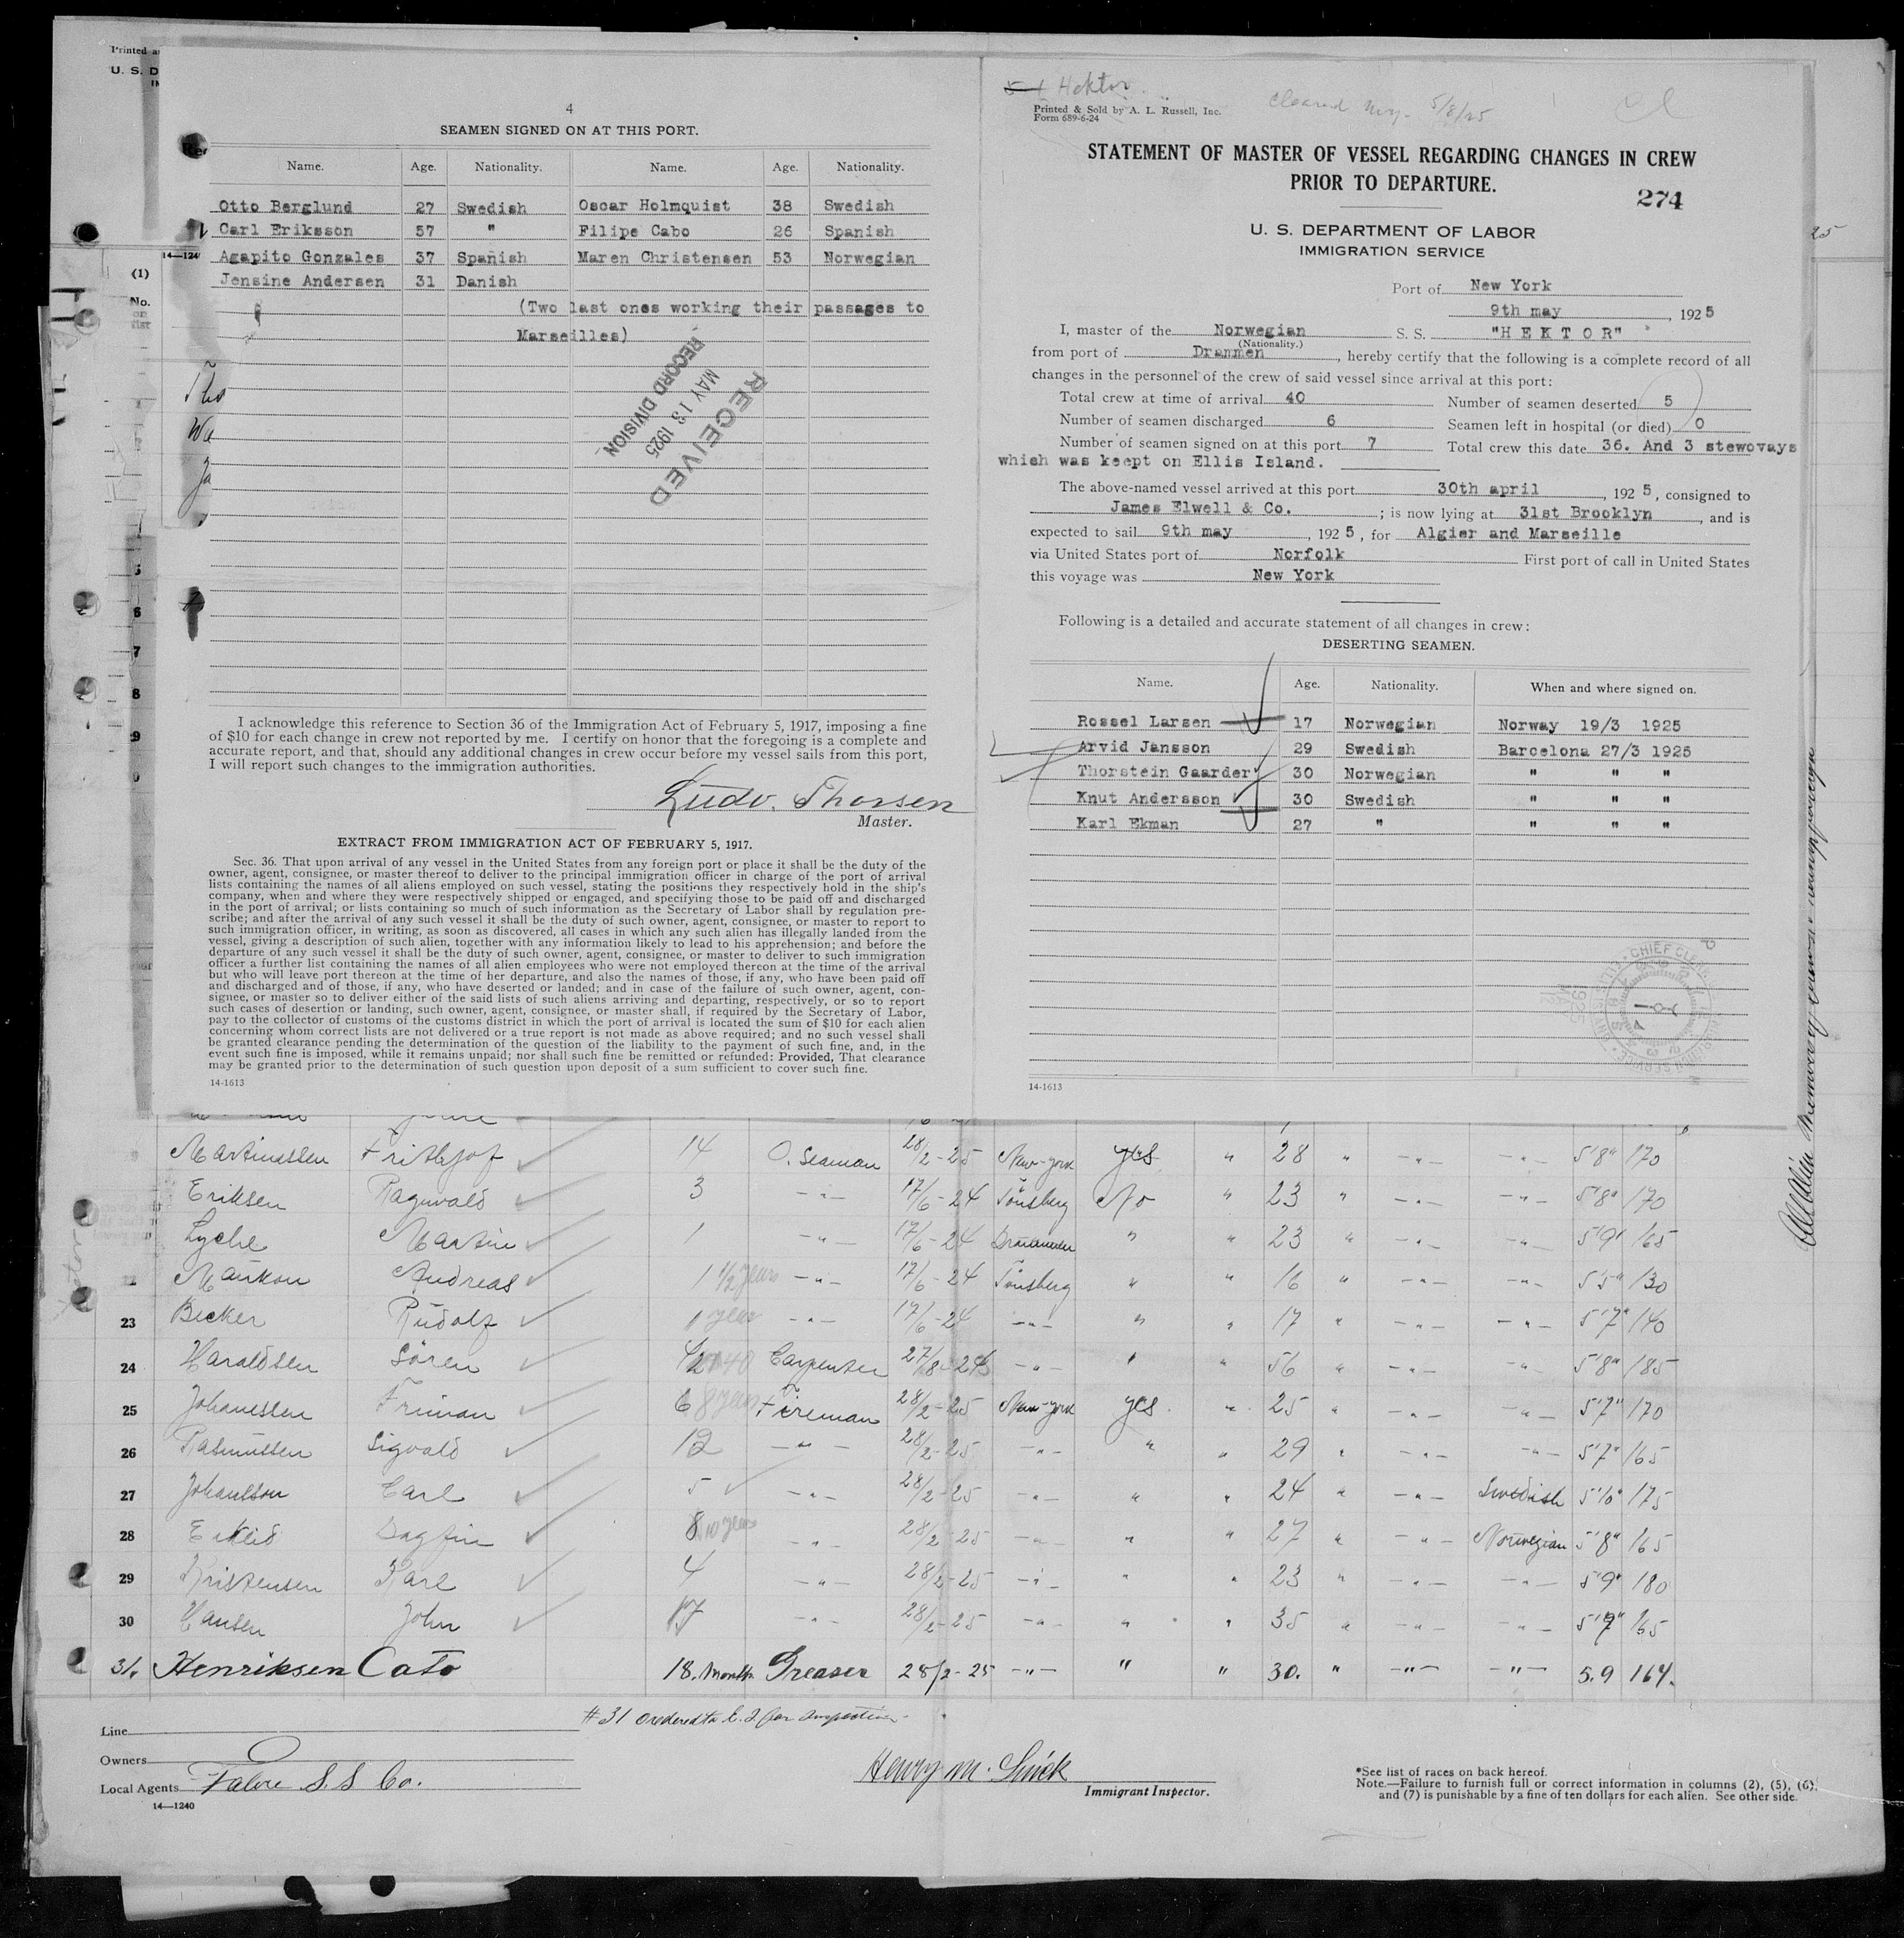 Printed a
U. S. D
4
SEAMEN SIGNED ON AT THIS PORT.
Name. Age. Nationality. Name. Age. Nationality.
Otto Berglund 27 Swedish Oscar Holmquist 38 Swedish
Carl Eriksson 57 " Filipe Cabo 26 Spanish
Agapito Gonzales 37 Spanish Maren Christensen 53 Norwegian
Jensine Andersen 31 Danish
(Two last ones working their passages to
Marseilles)
RECEIVED
MAY 13 1925
RECORD DIVISION
I acknowledge this reference to Section 36 of the Immigration Act of February 5, 1917, imposing a fine
of $10 for each change in crew not reported by me. I certify on honor that the foregoing is a complete and
accurate report, and that, should any additional changes in crew occur before my vessel sails from this port,
I will report such changes to the immigration authorities.
Ludv. Thorsen
Master.
EXTRACT FROM IMMIGRATION ACT OF FEBRUARY 5, 1917.
Sec. 36. That upon arrival of any vessel in the United States from any foreign port or place it shall be the duty of the
owner, agent, consignee, or master thereof to deliver to the principal immigration officer in charge of the port of arrival
lists containing the names of all aliens employed on such vessel, stating the positions they respectively hold in the ship's
company, when and where they were respectively shipped or engaged, and specifying those to be paid off and discharged
in the port of arrival; or lists containing so much of such information as the Secretary of Labor shall by regulation pre-
scribe; and after the arrival of any such vessel it shall be the duty of such owner, agent, consignee, or master to report to
such immigration officer, in writing, as soon as discovered, all cases in which any such alien has illegally landed from the
vessel, giving a description of such alien, together with any information likely to lead to his apprehension; and before the
departure of any such vessel it shall be the duty of such owner, agent, consignee, or master to deliver to such immigration
officer a further list containing the names of all alien employees who were not employed thereon at the time of the arrival
but who will leave port thereon at the time of her departure, and also the names of those, if any, who have been paid off
and discharged and of those, if any, who have deserted or landed; and in case of the failure of such owner, agent, con-
signee, or master so to deliver either of the said lists of such aliens arriving and departing, respectively, or so to report
such cases of desertion or landing, such owner, agent, consignee, or master shall, if required by the Secretary of Labor,
pay to the collector of customs of the customs district in which the port of arrival is located the sum of $10 for each alien
concerning whom correct lists are not delivered or a true report is not made as above required; and no such vessel shall
be granted clearance pending the determination of the question of the liability to the payment of such fine, and, in the
event such fine is imposed, while it remains unpaid; nor shall such fine be remitted or refunded: Provided, That clearance
may be granted prior to the determination of such question upon deposit of a sum sufficient to cover such fine.
14-1613
Hektor
Printed & Sold by A. L. Russell, Inc.
Form 689-6-24
Cleared 5/8/25
STATEMENT OF MASTER OF VESSEL REGARDING CHANGES IN CREW
PRIOR TO DEPARTURE.
274
U. S. DEPARTMENT OF LABOR
IMMIGRATION SERVICE
Port of New York
9th may, 1925
I, master of the Norwegian S. S. "H E K T O R"
(Nationality.)
from port of Drammen, hereby certify that the following is a complete record of all
changes in the personnel of the crew of said vessel since arrival at this port:
Total crew at time of arrival 40 Number of seamen deserted 5
Number of seamen discharged 6 Seamen left in hospital (or died) 0
Number of seamen signed on at this port 7 Total crew this date 36. And 3 stewovays
which was keept on Ellis Island.
The above-named vessel arrived at this port 30th april, 1925, consigned to
James Elwell & Co. ; is now lying at 31st Brooklyn, and is
expected to sail 9th may, 1925, for Algier and Marseille
via United States port of Norfolk First port of call in United States
this voyage was New York
Following is a detailed and accurate statement of all changes in crew:
DESERTING SEAMEN.
Name. Age. Nationality. When and where signed on.
Rossel Larsen 17 Norwegian Norway 19/3 1925
Arvid Jansson 29 Swedish Barcelona 27/3 1925
Thorstein Gaarder 30 Norwegian " " "
Knut Andersson 30 Swedish " " "
Karl Ekman 27 " " " "
14-1613
Martinussen Frithjof 14 O. Seaman 28/2-25 New-york yes " 28 " -"- -"- 5'8" 170
Eriksen Ragnvald 3 -"- 17/6-24 Tönsberg No " 23 " -"- -"- 5'8" 170
Lyche Martin 1 -"- 17/6-24 Drammen " " 23 " -"- -"- 5'9" 165
Andreas 1 1/2 years -"- 17/6-24 Tönsberg " " 16 " -"- -"- 5'5" 130
23 Becker Rudolf 1 year -"- 17/6-24 -"- " " 17 " -"- -"- 5'7" 140
24 Haraldsen Sören Carpenter -"- " " 56 " -"- -"- 5'8" 185
25 Johanessen 6 8 years Fireman 28/2-25 New-york yes " 25 " -"- -"- 5'7" 170
26 Rasmussen Sigvald 12 -"- 28/2-25 -"- " " 29 " -"- -"- 5'7" 165
27 Johanson Carl 5 -"- 28/2-25 -"- " " 24 " -"- Swedish 5'10" 175
28 Dagfin 8 10 years -"- 28/2-25 -"- " " 27 " -"- Norwegian 5'8" 165
29 Kristensen Karl 4 -"- 28/2-25 -"- " " 23 " -"- -"- 5'9" 180
30 Hansen John 17 -"- 28/2-25 -"- " " 35 " -"- -"- 5'7" 165
31. Henriksen Cato 18. Months Greaser 28/2-25 -"- " " 30. " -"- -"- 5.9 164.
#31 ordered to E. I. for inspection
Line
Owners
Local Agents Fabre S. S Co.
14—1240
Henry M.
Immigrant Inspector.
*See list of races on back hereof.
Note.—Failure to furnish full or correct information in columns (2), (5), (6),
and (7) is punishable by a fine of ten dollars for each alien. See other side.